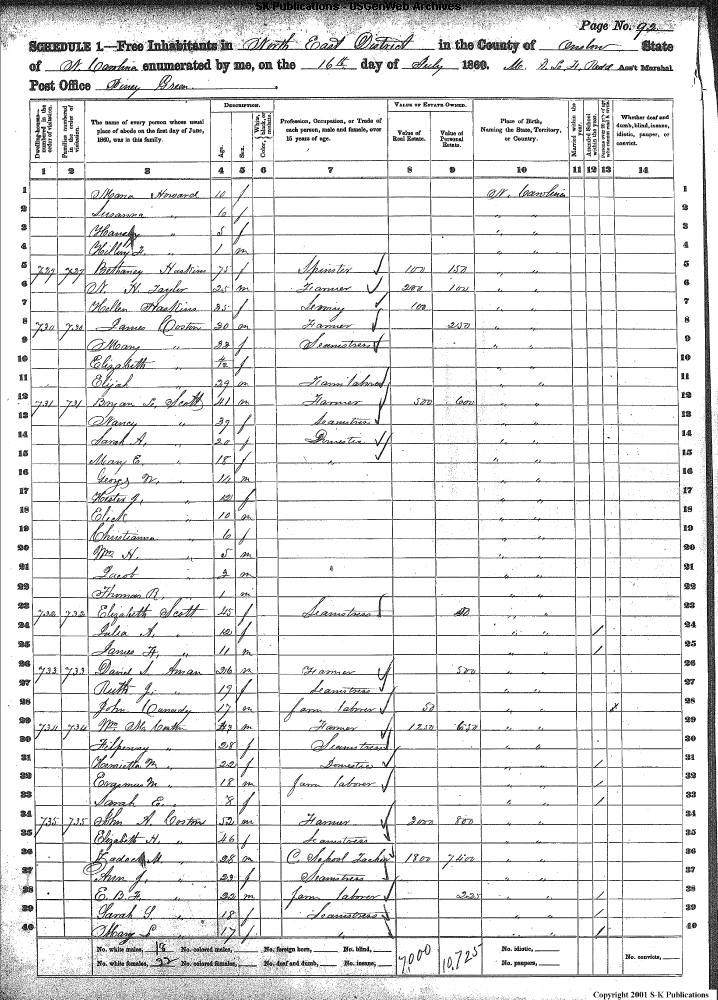 SK Publications - USGenWeb Archives
Page No. 92
SCHEDULE 1.—Free Inhabitants in North East District in the County of Onslow State
of N. Carolina enumerated by me, on the 16th day of July 1860. Ass't Marshal
Post Office Piney Green
Dwelling-houses numbered in the order of visitation.
Families numbered in the order of visitation.
The name of every person whose usual place of abode on the first day of June, 1860, was in this family.
DESCRIPTION.
Age.
Sex.
Color, White, black, or mulatto.
Profession, Occupation, or Trade of each person, male and female, over 15 years of age.
VALUE OF ESTATE OWNED.
Value of Real Estate.
Value of Personal Estate.
Place of Birth, Naming the State, Territory, or Country.
Married within the year.
Attended School within the year.
Whether deaf and dumb, blind, insane, idiotic, pauper, or convict.
1 2 3 4 5 6 7 8 9 10 11 12 13 14
1 Maria Howard 10 f N. Carolina 1
2 Susanna " 6 f " " 2
3 " 5 f " " 3
4 " 1 m " " 4
5 729 729 Bethaney Haskins 75 f Spinster 100 150 " " 5
6 N. H. Taylor 25 m Farmer 200 100 " " 6
7 Hellen Haskins 35 f 100 " " 7
8 730 730 James Coston 30 m Farmer 250 " " 8
9 Mary " 23 f Seamstress " " 9
10 Elizabeth " f " " 10
11 Elijah " 29 m Farm laborer " " 11
12 731 731 Bryan Scott 41 m Farmer 500 600 " " 12
13 Nancy " 39 f Seamstress " " 13
14 Sarah A. " 20 f Domestic " " 14
15 Mary E. " 18 f " " " 15
16 George W. " 14 m " " 16
17 Hester J. " 12 f " " 17
18 Elick " 10 m " " 18
19 Christianna " 6 f " " 19
20 Wm H. " 5 m " " 20
21 Jacob " 3 m " " 21
22 Thomas R. " 1 m " " 22
23 732 732 Elizabeth Scott 45 f Seamstress " " 23
24 Julia A. " 12 f " " / 24
25 James " 11 m " " / 25
26 733 733 David S. Aman 26 m Farmer 500 " " 26
27 Ruth J. " 19 f Seamstress " " 27
28 John Canady 17 m farm laborer 50 " " x 28
29 734 734 Wm 43 m Farmer 1250 650 " " 29
30 " 28 f Seamstress " " 30
31 Henrietta M " 22 f Domestic " " / 31
32 Erasmus M " 18 m farm laborer " " / 32
33 Sarah E. " 8 f " " / 33
34 735 735 John A. Coston 52 m Farmer 2000 800 " " 34
35 Elizabeth H. " 46 f Seamstress " " 35
36 Zadock M " 28 m C. School Teacher 1800 7400 " " 36
37 Ann J. " 23 f Seamstress " " 37
38 E. B. F. " 22 m farm laborer 225 " " / 38
39 Sarah S. " 18 f Seamstress " " / 39
40 Mary S " 17 f " " " / 40
No. white males, 18 No. colored males, No. foreign born, No. blind, 7,000 10,725 No. idiotic, No. convicts,
No. white females, 22 No. colored females, No. deaf and dumb, No. insane, No. paupers,
Copyright 2001 S-K Publications